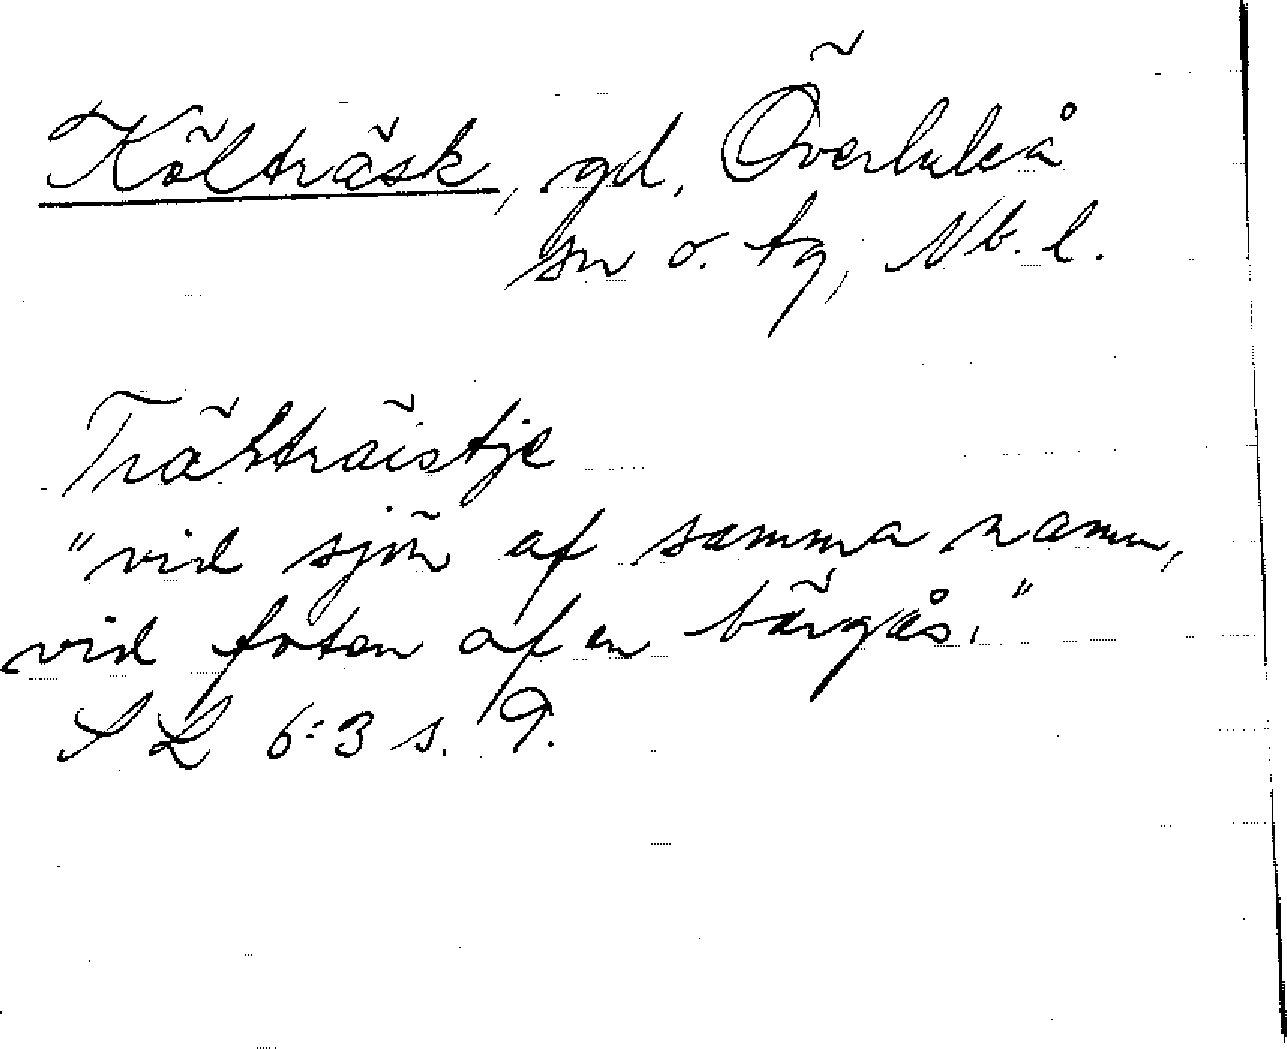 Költräsk, gd, Överluleå
sn o. tg, Nb. l.
Trähträistje
"vid sjön af samma namn,
vid foten af en bärgås."
SL 6:3 s. 9.